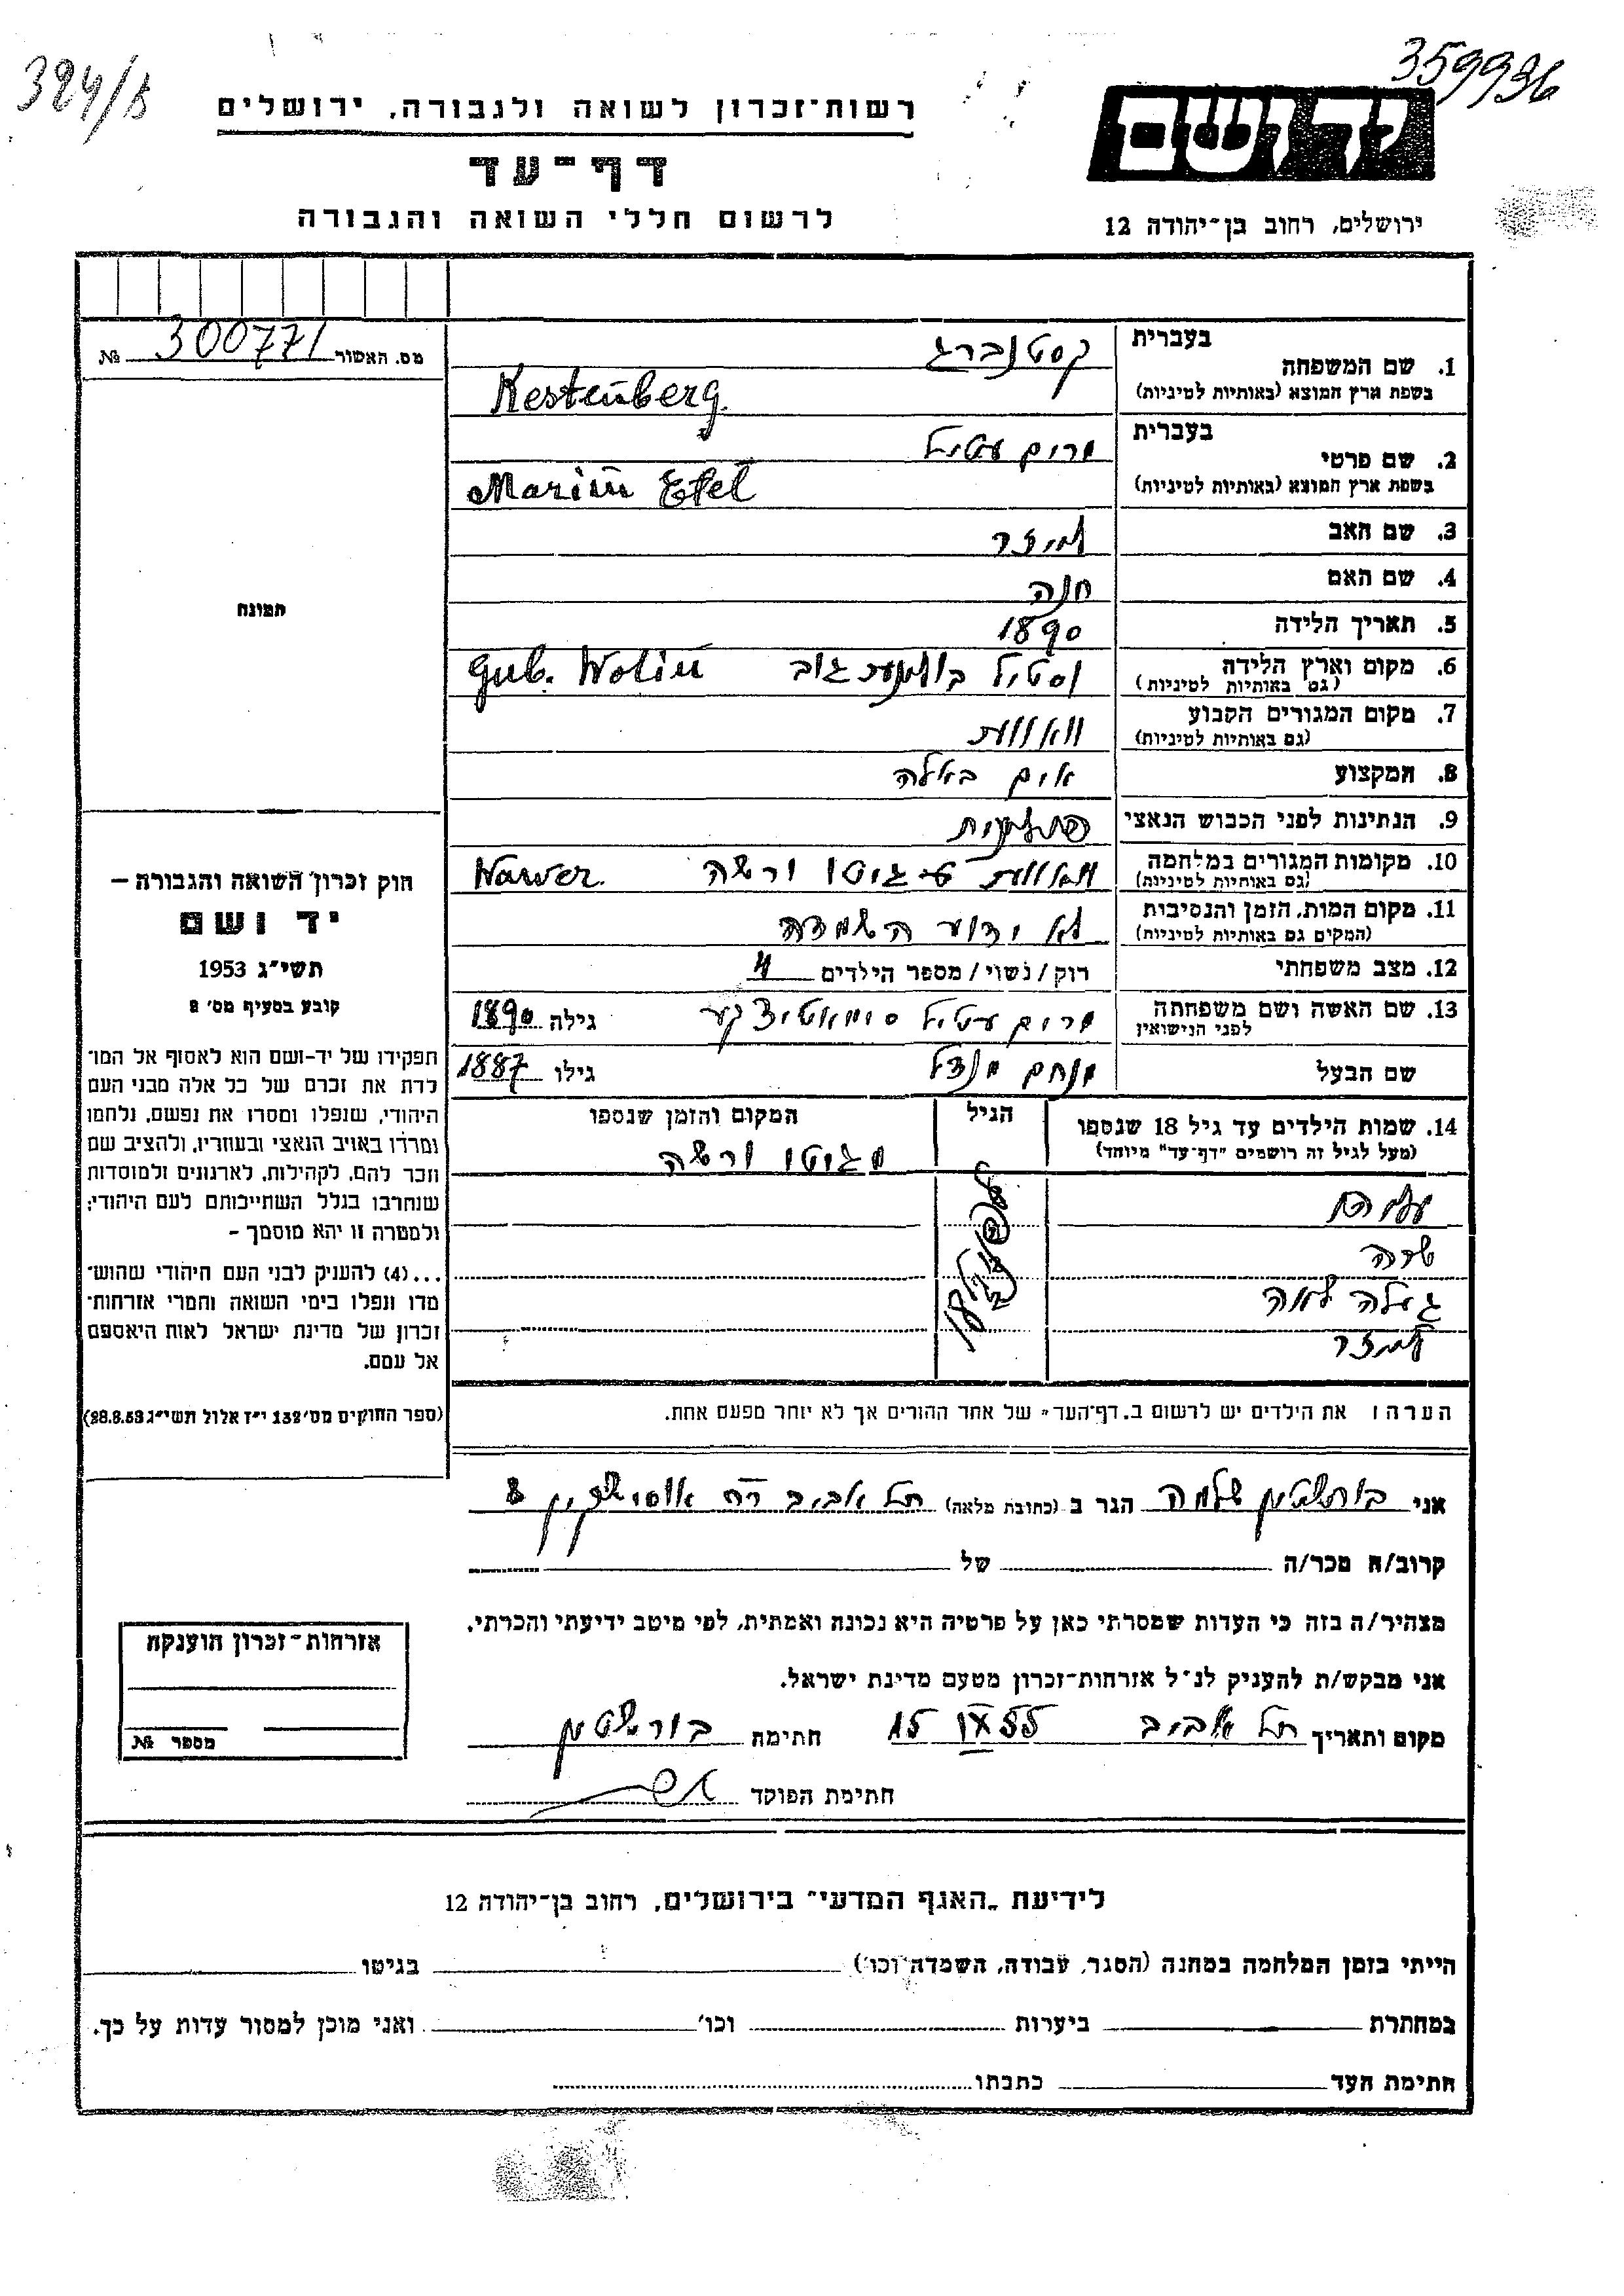 359936
324/8
רשות־זכרון לשואה ולגבורה, ירושלים
יד ושם
דף־עד
לרשום חללי השואה והגבורה
ירושלים, רחוב בן־יהודה 12
מס. האשור 300771 №
תמונה
1. שם המשפחה בעברית קסטנברג
בשפת ארץ המוצא (באותיות לטיניות) Kestenberg.
2. שם פרטי בעברית מרים עטיל
בשפת ארץ המוצא (באותיות לטיניות) Marim Etel
3. שם האב
4. שם האם חנה
5. תאריך הלידה 1890
6. מקום וארץ הלידה (גם באותיות לטיניות) גוב Gub. Wolin
7. מקום המגורים הקבוע (גם באותיות לטיניות)
8. המקצוע
9. הנתינות לפני הכבוש הנאצי
10. מקומות המגורים במלחמה (גם באותיות לטיניות) גיטו ורשה Wawer.
11. מקום המות, הזמן והנסיבות (המקום גם באותיות לטיניות) לא ידוע השמדה
12. מצב משפחתי רוק/נשוי/מספר הילדים 4
13. שם האשה ושם משפחתה לפני הנישואין מרים עטיל גילה 1890
שם הבעל מנחם מנדל גילו 1887
14. שמות הילדים עד גיל 18 שנספו (מעל לגיל זה רושמים "דף־עד" מיוחד) הגיל המקום והזמן שנספו
מגיטו ורשה
שרה
לאה
18
הערה: את הילדים יש לרשום ב„דף־העד" של אחד ההורים אך לא יותר מפעם אחת.
חוק זכרון השואה והגבורה –
יד ושם
תשי"ג 1953
קובע בסעיף מס' 2
תפקידו של יד־ושם הוא לאסוף אל המו־
לדת את זכרם של כל אלה מבני העם
היהודי, שנפלו ומסרו את נפשם, נלחמו
ומרדו באויב הנאצי ובעוזריו, ולהציב שם
וזכר להם, לקהילות, לארגונים ולמוסדות
שנחרבו בגלל השתייכותם לעם היהודי;
ולמטרה זו יהא מוסמך –
...(4) להעניק לבני העם היהודי שהוש־
מדו ונפלו בימי השואה והמרי אזרחות־
זכרון של מדינת ישראל לאות היאספם
אל עמם.
(ספר החוקים מס' 132 י"ז אלול תשי"ג 28.8.53)
אני בורשטין שלמה הגר ב (כתובת מלאה) תל אביב רח אוסישקין 8
קרוב/ה מכר/ה של
מצהיר/ה בזה כי העדות שמסרתי כאן על פרטיה היא נכונה ואמתית, לפי מיטב ידיעתי והכרתי.
אני מבקש/ת להעניק לנ"ל אזרחות־זכרון מטעם מדינת ישראל.
מקום ותאריך תל אביב 15 55 חתימה בורשטין
חתימת הפוקד
אזרחות־זכרון הוענקה
מספר №
לידיעת „האגף המדעי" בירושלים, רחוב בן־יהודה 12
הייתי בזמן המלחמה במחנה (הסגר, עבודה, השמדה וכו') בגיטו
במחתרת ביערות וכו' ואני מוכן למסור עדות על כך.
חתימת העד כתבתו